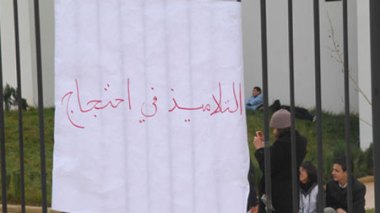 التلاميذ في احتجاج